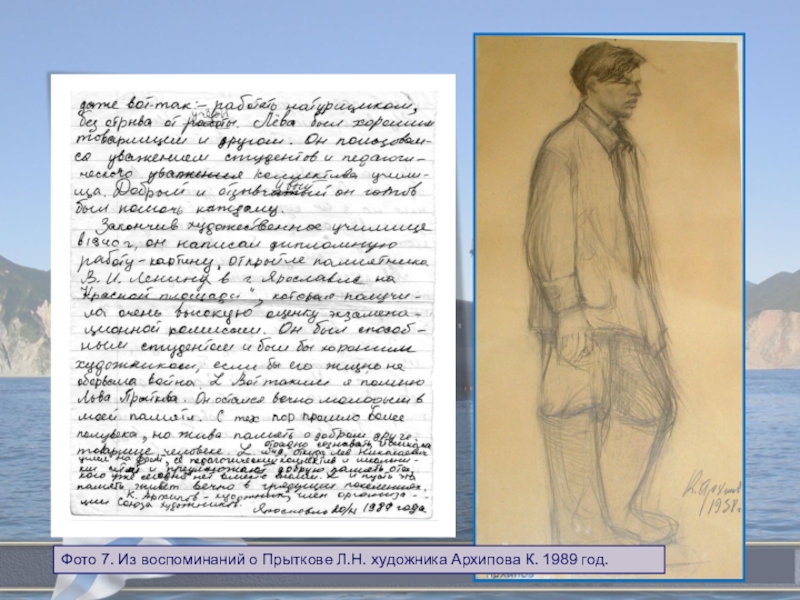 даже вот так:– работать натурщиком,
без отрыва от учёбы. Лёва был хорошим
товарищем и другом. Он пользовал–
ся уважением студентов и педагоги–
ческого уважения коллектива учили–
ща. Добрый и отзывчивый он готов
был помочь каждому.
Закончив художественное училище
в 1940 г, он написал дипломную
работу-картину, открытие памятника
В. И. Ленину в г Ярославле на
"Красной площади", которая получи–
ла очень высокую оценку экзамена–
ционной комиссии. Он был способ–
ным студентом и был бы хорошим
художником, если бы его жизнь не
оборвала война. Вот таким я помню
Льва Прыткова. Он остался вечно молодым в
моей памяти. С тех пор прошло более
полувека, но жива память о добром друге,
товарище человеке. отрадно сознавать, и школа
откуда Лев Николаевич
на фронт, её педагогический коллектив и
и продолжают добрую память о тех,
кого уже с нами. И пусть эта
память живёт вечно в грядущих поколениях.
К. Архипов – художник, член организа–
ции Союза художников.
Ярославль 20/ 1989 года.
К. Архипов
1938 г.
Архипов
Фото 7. Из воспоминаний о Прыткове Л.Н. художника Архипова К. 1989 год.